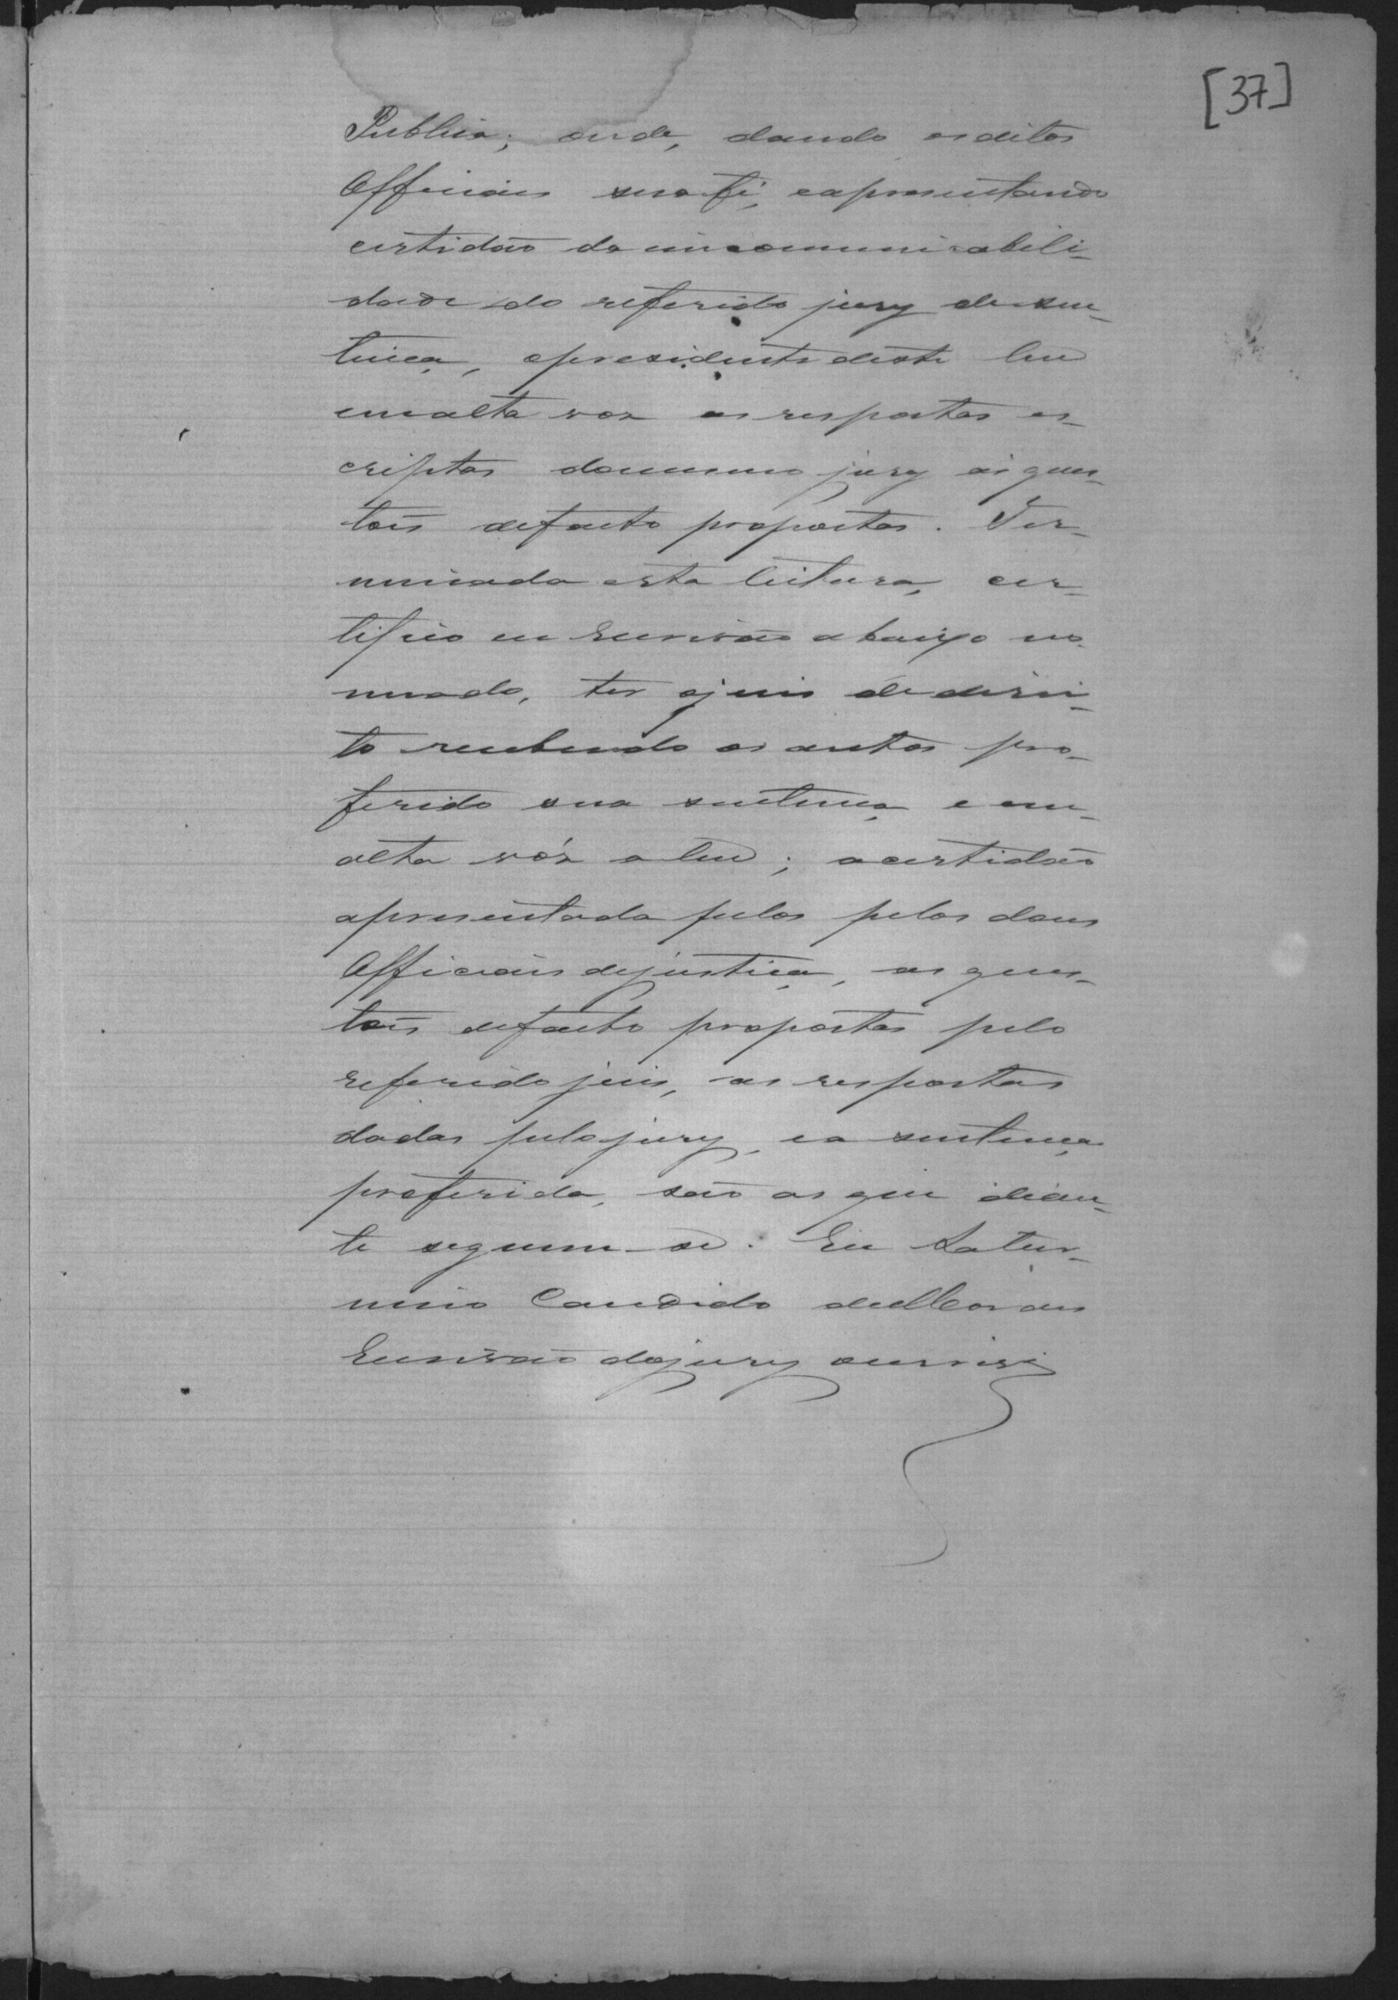 [37]
Publica; onde, dando os ditos
Officiaes sua fé, e apresentando
certidão da incommunicabili-
dade do referido jury de sen-
tença, o presidente deste leu
em alta voz as respostas es-
criptas do mesmo jury ás ques-
tões de facto propostas. Ter-
minada esta leitura, cer-
tifico eu Escrivão abaixo no-
meado, ter o juis de direi-
to recebendo os autos pro-
ferido sua sentença e em
alta vóz a leu; a certidão
apresentada pelos pelos dous
Officiaes de justiça, as ques-
tões de facto propostas pelo
referido juis, as respostas
dadas pelo jury, e a sentença
proferida, são as que dian-
te seguem-se. Eu Satur-
nino Candido de Moraes
Escrivão do jury escrevi